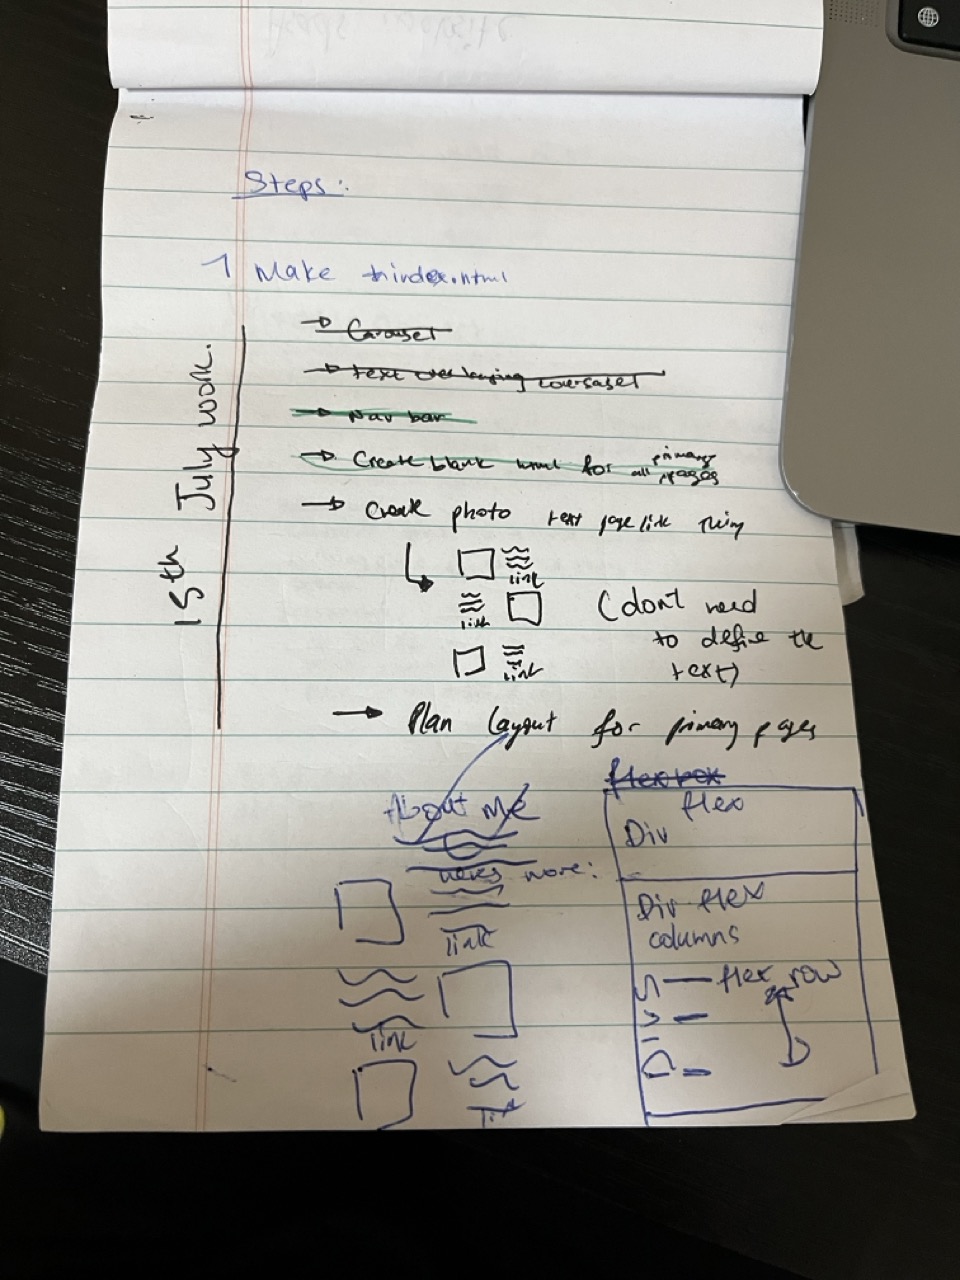 Steps:
1 Make index.html
→ Carousel
→ text overlaying courasel
→ Nav bar
→ Create blank html for all primary pages
→ Create photo text page link thing
link
link
(dont need
to define the
text)
link
→ Plan layout for primary pages
15th July work.
About Me
heres more:
link
link
link
flex box
flex
Div
Div flex
columns
flex row